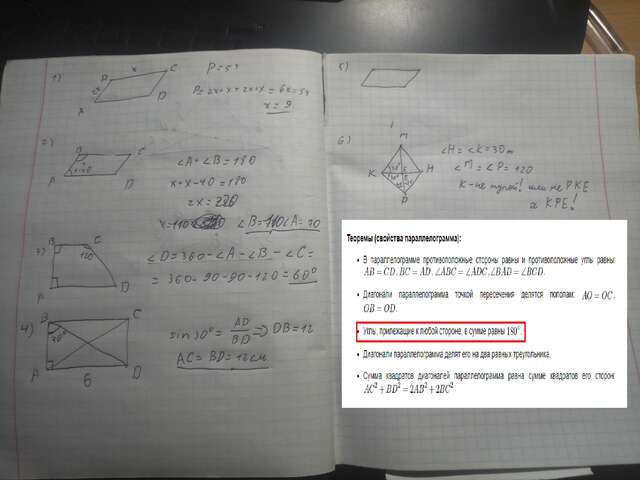 1)
B
x
C
2x
A
D
P=54
P=2x+x+2x+x=6x=54
x=9
2)
B
C
A
D
∠A+∠B=180
x+x-40=180
2x=220
x=110
∠B=110 ∠A=70
3)
B
C
120
A
D
∠D=360-∠A-∠B-∠C=
=360-90-90-120=60°
4)
B
C
30°
A
6
D
sin30°=AD/BD ⇒ DB=12
AC=BD=12см
5)
6)
M
K
E
H
P
∠H=∠K=30
∠M=∠P=120
K-не тупой! или не PKE
а KPE!
Теоремы (свойства параллелограмма):
• В параллелограмме противоположные стороны равны и противоположные углы равны:
AB = CD, BC = AD, ∠ABC = ∠ADC, ∠BAD = ∠BCD.
• Диагонали параллелограмма точкой пересечения делятся пополам: AO = OC,
OB = OD.
• Углы, прилежащие к любой стороне, в сумме равны 180°.
• Диагонали параллелограмма делят его на два равных треугольника.
• Сумма квадратов диагоналей параллелограмма равна сумме квадратов его сторон:
AC² + BD² = 2AB² + 2BC²